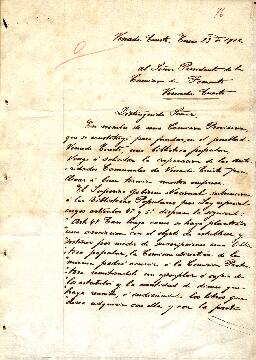 76
Venado Tuerto, Enero 23 de 1912
Al Señor Presidente de la
Comision de Fomento
Venado Tuerto
Distinguido Señor:
En nombre de una Comision Provisoria
que se constituyó para fundar, en esta localidad
Venado Tuerto, una biblioteca popular,
Vengo á solicitar la cooperacion de las auto-
ridades Comunales de Venado Tuerto para
llevar á buen termino nuestra empresa.
El Superior Gobierno Nacional subvenciona
á las Bibliotecas Populares por Ley cuyos
artículos 4º y 5º disponen lo siguiente:
Art. 4º Tan luego como se haya planteado
una asociacion con el objeto de establecer y
sostener por medio de suscripciones una Biblio-
teca popular, la Comision directiva de la
misma podrá ocurrir á la Comision Protec-
tora remitiendole un ejemplar ó copia de
los estatutos y la cantidad de dinero que
haya reunido, é indicandole los libros que
desea adquirir con ella y con la parte